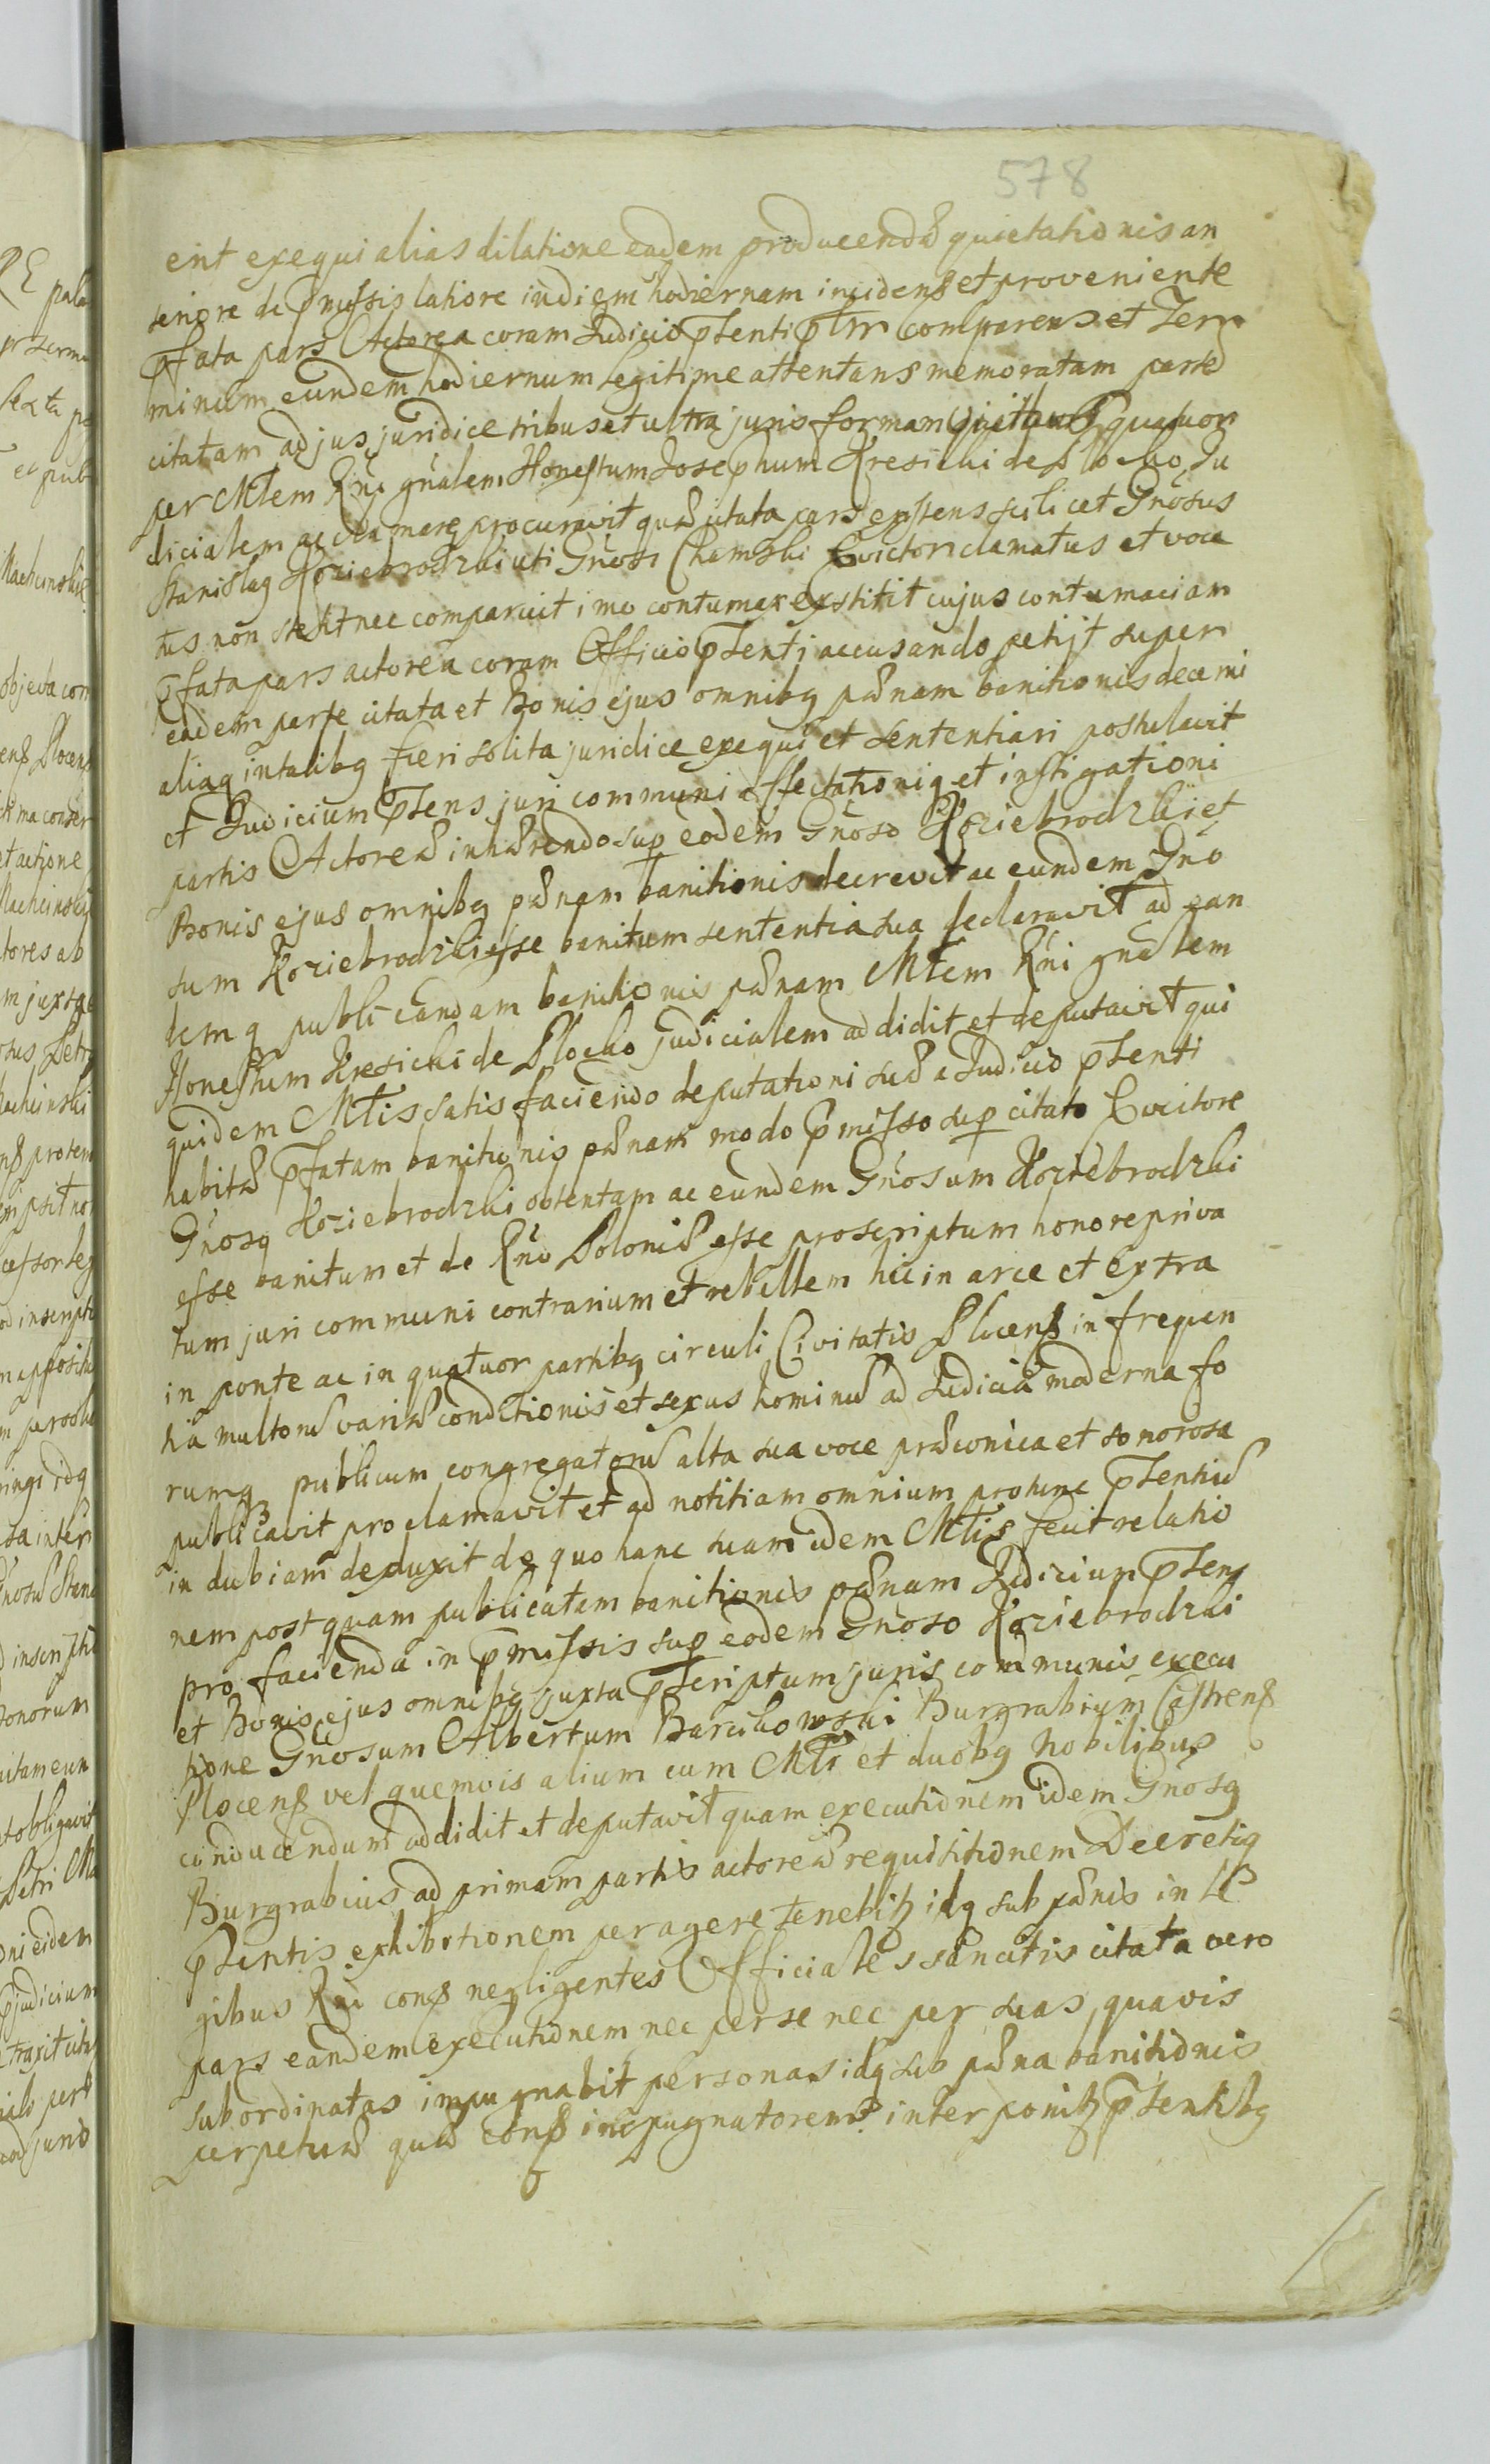 578
erit exequi alias dilatione eadem producendæ quietationis an
teriore de p̃missis latiore in diem hodiernam incidens et proveniente
p̃fata pars Actorea coram Judicio p̃senti p̃lr comparens et Ter
minum eundem hodiernum legitime attentans memoratam partē
citatam ad jus juridice tribus et ultra juris formam quatuor
per Mtlem Rñi gñalem Honestum Josephum Kresicki de Plocko Ju
dicialem acclamare procuravit quæ citata pars exiſtens scilicet Gñosus
Stanislaꝗ Koziebrodzki uti Gñosi Chamski Evictor clamatus et voca
tus non stetit nec comparuit imo contumax exstitit cujus contumaciam
p̃fata pars actorea coram Officio p̃senti accusando petijt super
eadem parte citata et Bonis ejus omnibꝗ pænam banitionis decerni
aliaꝗ in talibꝗ fieri solita juridice exequi et sententiari postulavit
et Judicium p̃sens juri communi affectationiꝗ et instigationi
partis Actoreæ inhærendo sup eodem Gñoso Koziebrodzki et
Bonis ejus omnibꝗ pænam banitionis decrevit ac eundem Gño
sum Koziebrodzki esse banitum sententia sua declaravit ad ean
demꝗ publicandam banitionis pænam Mtlem Rñi gñalem
Honestum Kresicki de Plocko Judicialem addidit et deputavit qui
quidem Mtlis satisfaciendo deputationi suæ a Judicio p̃senti
habitæ p̃fatam banitionis pænam modo p̃misso sup citato Evictore
Gñosꝗ Koziebrodzki obtentam ac eundem Gñosum Koziebrodzki
esse banitum et de Rño Poloniæ esse proscriptum honore priva
tum juri communi contrarium et rebellem hic in arce et extra
in ponte ac in quatuor partibꝗ circuli Civitatis Plocenß in frequen
tia multorū variæ conditionis et sexus hominū ad Judicia moderna fo
rumꝗ publicum congregatorū alta sua voce præconica et sonorosa
publicavit proclamavit et ad notitiam omnium protunc p̃sentiū
indubiam deduxit de quo hanc suam idem Mtlis fecit relatio
nem post quam publicatam banitionis pænam Judicium p̃sens
pro facienda in p̃missis sup eodem Gñoso Koziebrodzki
et Bonis ejus omnibꝗ juxta p̃scriptum juris communis execu
tione Gñosum Albertum Barcikowski Burgrabium Castrenß
Plocenß vel quemvis alium cum Mtli et duobꝗ Nobilibus
conducendum addidit et deputavit quam executionem idem Gñosꝗ
Burgrabius ad primam partis actoreæ requisitionem Decretiꝗ
p̃sentis exhibitionem peragere tenebitꝫ idꝗ sub pænis in Le
gibus Rñi conß negligentes Officiales sancitis citata vero
pars eandem executionem nec per se nec per suas quavis
subordinatas impugnabit personas idꝗ sub pæna banitionis
perpetuæ quæ conß impugnatorem interponitꝫ p̃sentibꝗ